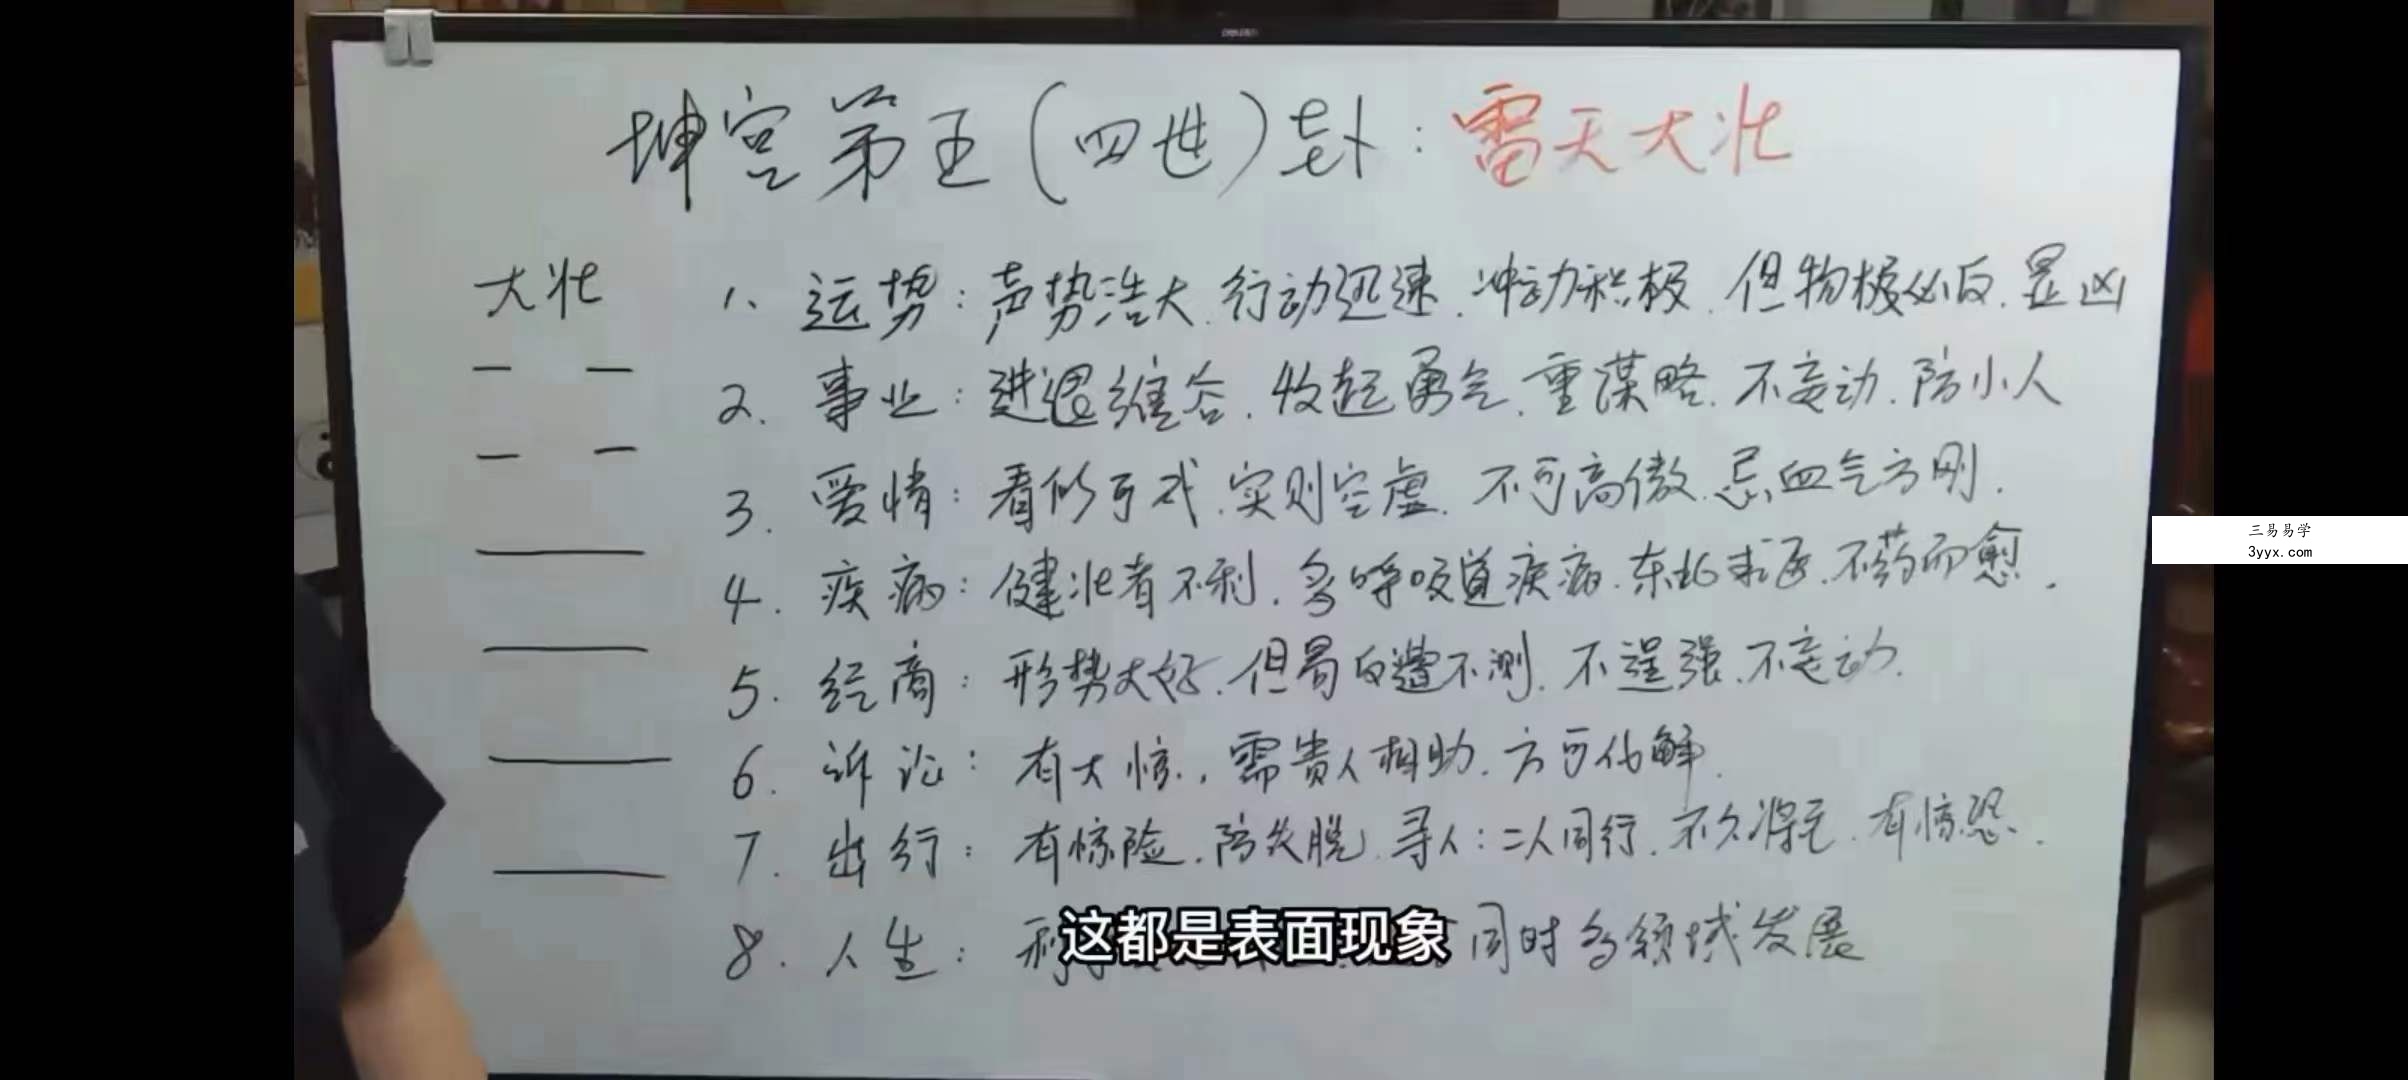 坤宫第五(四世)卦:雷天大壮
大壮
1、运势:声势浩大.行动迅速.冲动积极.但物极必反.显凶
2.事业:进退维谷.收起勇气.重谋略.不妄动.防小人
3.爱情:看似可成.实则空虚.不可高傲.忌血气方刚.
4.疾病:健壮者不利.多呼吸道疾病.东北求医.不药而愈.
5.经商:形势大好.但易反遭不测.不逞强.不妄动.
6.诉讼:有大惊,需贵人相助.方可化解.
7.出行:有惊险.防失脱.寻人:二人同行.不久将至.有惊恐.
8.人生:利 同时多领域发展
这都是表面现象
三易易学
3yyx.com